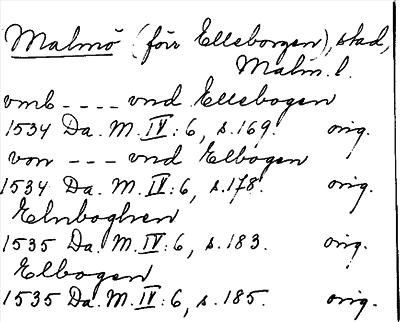 Malmö (förr Ellebogen), stad,
Malm. l.
vmb - - - - vnd Ellebogen
1534 Da. M. IV: 6, s. 169. orig.
von - - - vnd Elbogen
1534 Da. M. IV: 6, s. 178. orig.
Elnboghen
1535 Da. M. IV: 6, s. 183. orig.
Elbogen
1535 Da. M. IV: 6, s. 185. orig.